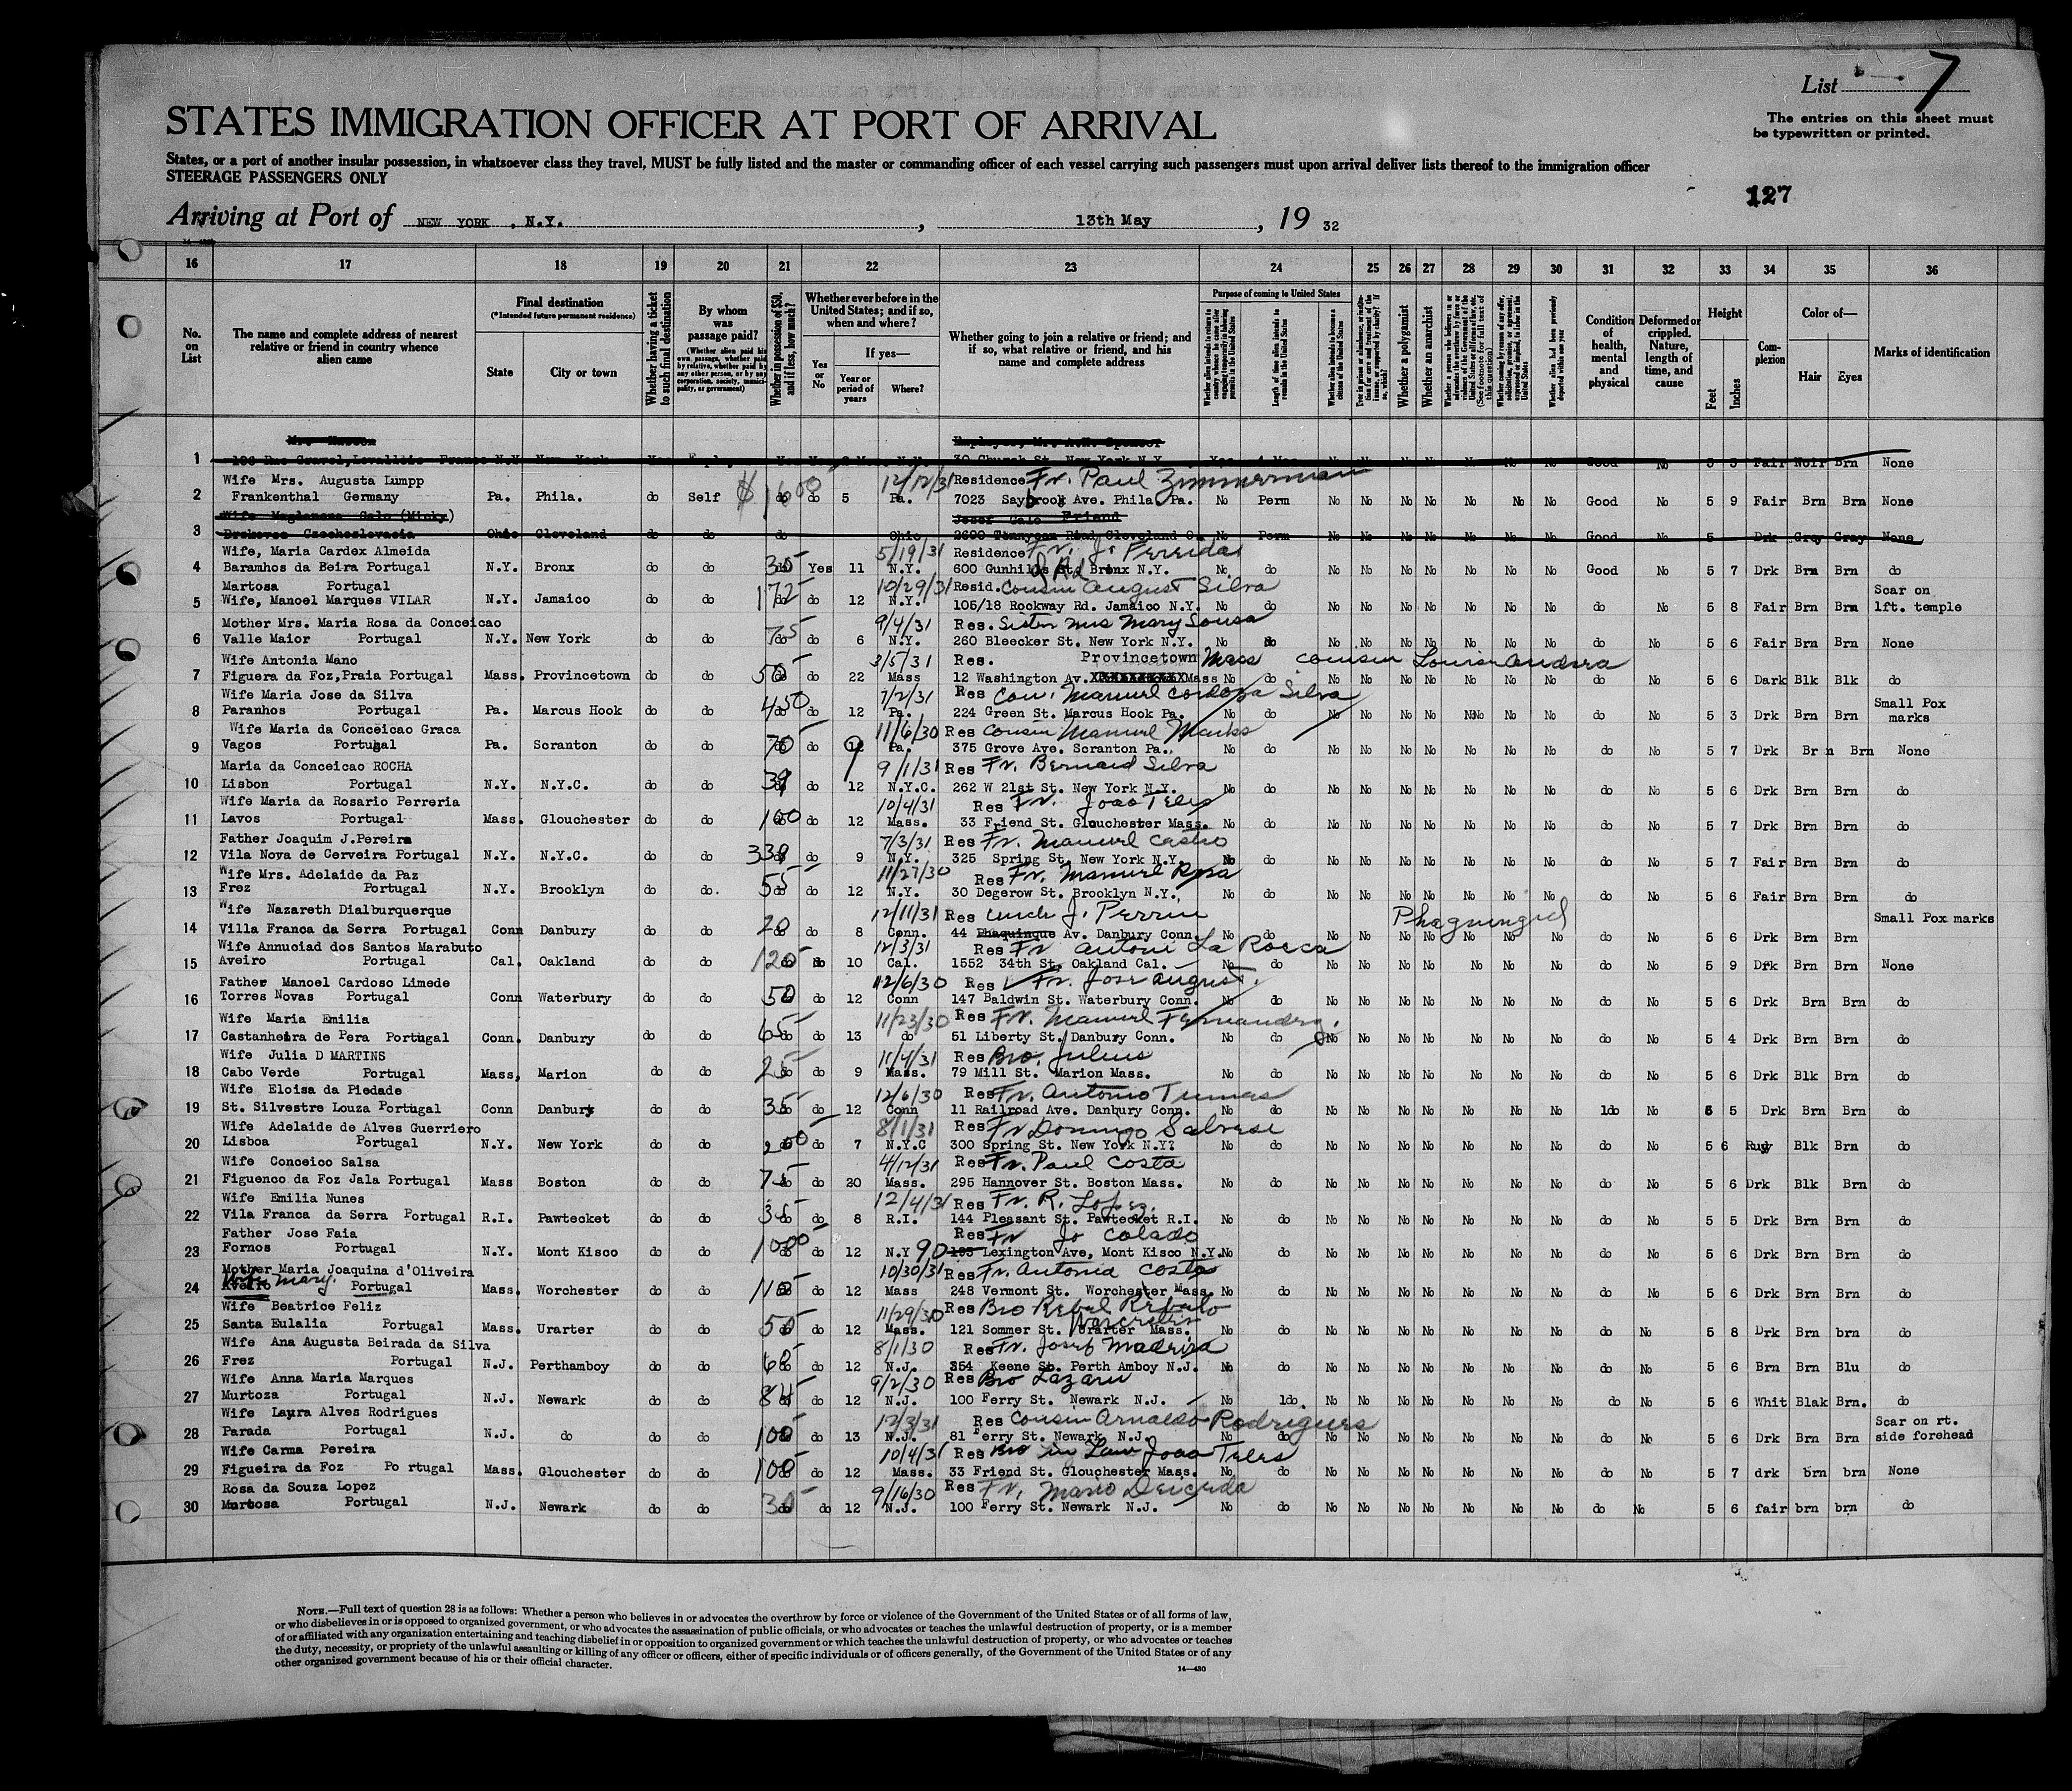 List 7
STATES IMMIGRATION OFFICER AT PORT OF ARRIVAL
The entries on this sheet must
be typewritten or printed.
States, or a port of another insular possession, in whatsoever class they travel, MUST be fully listed and the master or commanding officer of each vessel carrying such passengers must upon arrival deliver lists thereof to the immigration officer
STEERAGE PASSENGERS ONLY
127
Arriving at Port of NEW YORK , N.Y. , 13th May , 19 32
16 17 18 19 20 21 22 23 24 25 26 27 28 29 30 31 32 33 34 35 36
No. on List
The name and complete address of nearest relative or friend in country whence alien came
Final destination
(*Intended future permanent residence)
State
City or town
Whether having a ticket to such final destination
By whom was passage paid?
(Whether alien paid his own passage, whether paid by relative, whether paid by any other person, or by any corporation, society, municipality, or government)
Whether in possession of $50, and if less, how much?
Whether ever before in the United States; and if so, when and where?
Yes or No
If yes—
Year or period of years
Where?
Whether going to join a relative or friend; and if so, what relative or friend, and his name and complete address
Purpose of coming to United States
Length of time alien intends to remain in the United States
Whether alien intends to become a citizen of the United States
Whether a polygamist
Whether an anarchist
Condition of health, mental and physical
Deformed or crippled. Nature, length of time, and cause
Height
Feet
Inches
Complexion
Color of—
Hair
Eyes
Marks of identification
1 New York 30 Church St. New York N.Y. Good No 5 5 Fair Noir Brn None
Wife Mrs. Augusta Lumpp 12/12/31 Residence Fr. Paul Zimmerman
2 Frankenthal Germany Pa. Phila. do Self do do 5 Pa. 7023 Saybrook Ave. Phila. Pa. No Perm No No No No No No No Good No 5 9 Fair Brn Brn None
Josef Galo Friend
3 Czechoslovacia Ohio Cleveland do do do Ohio 2600 Tennyson Road Cleveland O. No Perm No No No No No No No Good No 5 Drk Gray Gray None
Wife, Maria Cardex Almeida 5/19/31 Residence Fr. J. Pereida
4 Baramhos da Beira Portugal N.Y. Bronx do do 35 Yes 11 N.Y. 600 Gunhills Bronx N.Y. No do No No No No No No No Good No 5 7 Drk Brn Brn do
Martosa Portugal 10/29/31 Resid. Cousin August Silva Scar on
5 Wife, Manoel Marques VILAR N.Y. Jamaico do do 172 do 12 N.Y. 105/18 Rockway Rd. Jamaico N.Y. No do No No No No No No No do No 5 8 Fair Brn Brn lft. temple
Mother Mrs. Maria Rosa da Conceicao 9/4/31 Res. Sister Mrs Mary Sousa
6 Valle Maior Portugal N.Y. New York do do 75 6 N.Y. 260 Bleecker St. New York N.Y. No do No No No No No No No do No 5 6 Fair Brn Brn None
Wife Antonia Mano 3/5/31 Res. Provincetown Mass cousin Louise Andsra
7 Figuera da Foz,Praia Portugal Mass. Provincetown do do 50 do 22 Mass 12 Washington Av. Mass No do No No No No No No No do No 5 6 Dark Blk Blk do
Wife Maria Jose da Silva 7/2/31 Res Cou. Manuel Cordoza Silva Small Pox
8 Paranhos Portugal Pa. Marcus Hook do do 450 do 12 Pa. 224 Green St. Marcus Hook Pa. No do No No No No No No No do No 5 3 Drk Brn Brn marks
Wife Maria da Conceicao Graca 11/6/30 Res Cousin Manuel Marks
9 Vagos Portugal Pa. Scranton do do 70 do 9 Pa. 375 Grove Ave. Scranton Pa. No do No No No No No No No do No 5 7 Drk Brn Brn None
Maria da Conceicao ROCHA 9/1/31 Res Fr. Bernard Silva
10 Lisbon Portugal N.Y. N.Y.C. do do 39 do 12 N.Y.C. 262 W 21st St. New York N.Y. No do No No No No No No No do No 5 6 Drk Brn Brn do
Wife Maria do Rosario Perreria 10/4/31 Res Fr. Joao Teles
11 Lavos Portugal Mass. Glouchester do do 100 do 12 Mass. 33 Friend St. Glouchester Mass. No do No No No No No No No do No 5 7 Drk Brn Brn do
Father Joaquim J.Pereira 7/3/31 Res Fr. Manuel Castro
12 Vila Nova de Cerveira Portugal N.Y. N.Y.C. do do 339 do 9 N.Y. 325 Spring St. New York N.Y. No do No No No No No No No do No 5 7 Fair Brn Brn do
Wife Mrs. Adelaide da Paz 11/27/30 Res Fr. Manuel Rosa
13 Frez Portugal N.Y. Brooklyn do do. 55 do 12 N.Y. 30 Degerow St. Brooklyn N.Y. No do No No No No No No No do No 5 6 Fair Brn Brn do
Wife Nazareth Dialburquerque 12/11/31 Res Uncle J. Perrin Small Pox marks
14 Villa Franca da Serra Portugal Conn Danbury do do 20 do 8 Conn. 44 Phaquinque Av. Danbury Conn. No do No No No No No No No do No 5 6 Drk Brn Brn
Wife Annuciad dos Santos Marabuto 12/3/31 Res Fr Antoni La Rocca
15 Aveiro Portugal Cal. Oakland do do 120 10 Cal. 1552 34th St. Oakland Cal. No do No No No No No No No do No 5 9 Drk Brn Brn None
Father Manoel Cardoso Limede 12/6/30 Res Fr. Jose August.
16 Torres Novas Portugal Conn Waterbury do do 50 do 12 Conn 147 Baldwin St. Waterbury Conn. No do No No No No No No No do No 5 6 Drk Brn Brn do
Wife Maria Emilia 11/23/30 Res Fr. Manuel Fernandez.
17 Castanheira de Pera Portugal Conn. Danbury do do 65 do 13 do 51 Liberty St. Danbury Conn. No do No No No No No No No do No 5 4 Drk Brn Brn do
Wife Julia D MARTINS 11/4/31 Res Bro. Julius
18 Cabo Verde Portugal Mass, Marion do do 25 do 9 Mass. 79 Mill St. Marion Mass. No do No No No No No No No do No 5 6 Drk Blk Brn do
Wife Eloisa da Piedade 12/6/30 Res Fr. Antonio Tumas
19 St. Silvestre Louza Portugal Conn Danbury do do 35 do 12 Conn 11 Railroad Ave. Danbury Conn. No do No No No No No No No do No 5 Drk Brn Brn do
Wife Adelaide de Alves Guerriero 8/1/31 Res Fr Domingo Salvese
20 Lisboa Portugal N.Y. New York do do 200 do 7 N.Y.C 300 Spring St. New York N.Y? No do No No No No No No No do No 5 6 Blk Brn do
Wife Conceico Salsa 4/12/31 Res Fr. Paul Costa
21 Figuenco da Foz Jala Portugal Mass Boston do do 75 do 20 Mass. 295 Hannover St. Boston Mass. No do No No No No No No No do No 5 6 Drk Blk Brn do
Wife Emilia Nunes 12/4/31 Res Fr. R. Lopez.
22 Vila Franca da Serra Portugal R.I. Pawtecket do do 35 do 8 R.I. 144 Pleasant St. Pawtecket R.I. No do No No No No No No No do No 5 5 Drk Brn Brn do
Father Jose Faia Res Fr Jo Colado
23 Fornos Portugal N.Y. Mont Kisco do do 1000 do 12 N.Y 90 Lexington Ave, Mont Kisco N.Y. No do No No No No No No No do No 5 6 Drk Brn Brn do
Mother Maria Joaquina d'Oliveira 10/30/31 Res Fr. Antonia Costa
Wife Mary.
24 Portugal Mass. Worchester do do 110 do 12 Mass 248 Vermont St. Worchester Mass. No do No No No No No No No do No 5 6 Drk Brn Brn do
Wife Beatrice Feliz 11/29/30 Res Bro Rebul Rebulo
25 Santa Eulalia Portugal Mass. Urarter do do 50 do 12 Mass. 121 Sommer St. Urarter Mass. No do No No No No No No No do No 5 8 Drk Brn brn do
Wife Ana Augusta Beirada da Silva 8/1/30 Res Fr. Josef Madriza
26 Frez Portugal N.J. Perthamboy do do 60 do 12 N.J. 354 Keene St. Perth Amboy N.J. No do No No No No No No No do No 5 6 Brn Brn Blu do
Wife Anna Maria Marques 9/2/30 Res Bro Lazaru
27 Murtoza Portugal N.J. Newark do do 84 do 12 N.J. 100 Ferry St. Newark N.J. No do No No No No No No No do No 5 6 Whit Blak Brn. do
Wife Laura Alves Rodrigues 12/3/31 Res Cousin Arnaldo Rodrigues Scar on rt.
28 Parada Portugal N.J. do do do 100 do 13 N.J. 81 Ferry St. Newark N.J. No do No No No No No No No do No 5 6 Drk Brn Brn side forehead
Wife Carma Pereira 10/4/31 Res Bro in Law Joao Teles
29 Figueira da Foz Po rtugal Mass. Glouchester do do 100 do 12 Mass. 33 Friend St. Glouchester Mass. No do No No No No No No No do No 5 7 drk brn brn None
Rosa da Souza Lopez 9/16/30 Res Fr. Mario Deicada
30 Murtosa Portugal N.J. Newark do do 30 do 12 N.J. 100 Ferry St. Newark N.J. No do No No No No No No No do No 5 6 fair brn brn do
NOTE.—Full text of question 28 is as follows: Whether a person who believes in or advocates the overthrow by force or violence of the Government of the United States or of all forms of law,
or who disbelieves in or is opposed to organized government, or who advocates the assassination of public officials, or who advocates or teaches the unlawful destruction of property, or is a member
of or affiliated with any organization entertaining and teaching disbelief in or opposition to organized government or which teaches the unlawful destruction of property, or who advocates or teaches
the duty, necessity, or propriety of the unlawful assaulting or killing of any officer or officers, either of specific individuals or of officers generally, of the Government of the United States or of any
other organized government because of his or their official character.
14—430